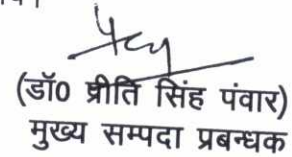 (डॉ0 प्रीति सिंह पंवार)
मुख्य सम्पदा प्रबन्धक